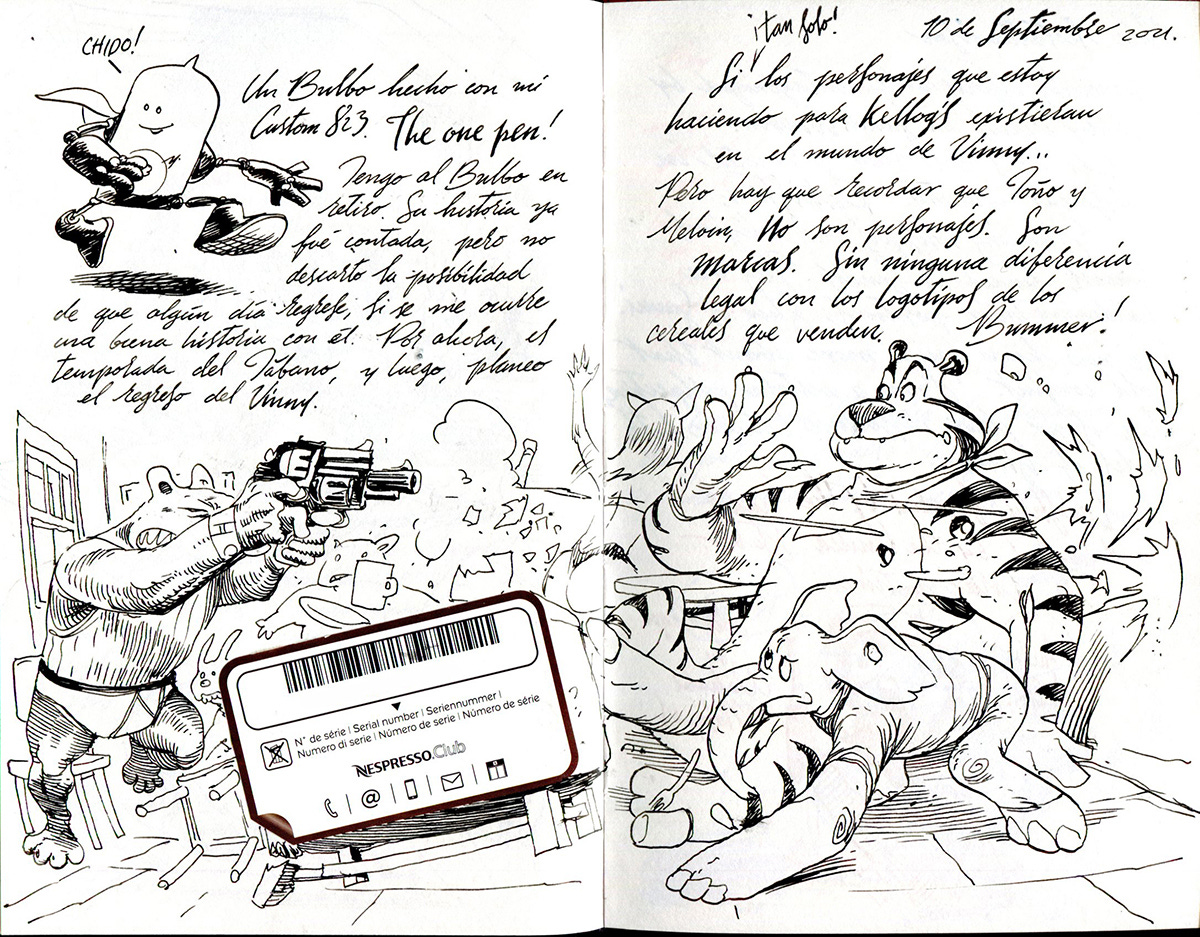 CHIDO!
Un Bulbo hecho con mi
Custom 823. The one pen!
Tengo al Bulbo en
retiro. Su historia ya
fué contada, pero no
descarto la posibilidad
de que algún día regrese, si se me ocurre
una buena historia con él. Por ahora, es
temporada del Tábano, y luego, planeo
el regreso del Vinny.
N° de série | Serial number | Seriennummer |
Numero di serie | Número de serie | Número de série
NESPRESSO.Club
@
10 de Septiembre 2021.
¡tan solo!
Si los personajes que estoy
haciendo para Kellog's existieran
en el mundo de Vinny...
Pero hay que recordar que Toño y
Melvin, No son personajes. Son
marcas. Sin ninguna diferencia
legal con los logotipos de los
cereales que venden. Bummer!